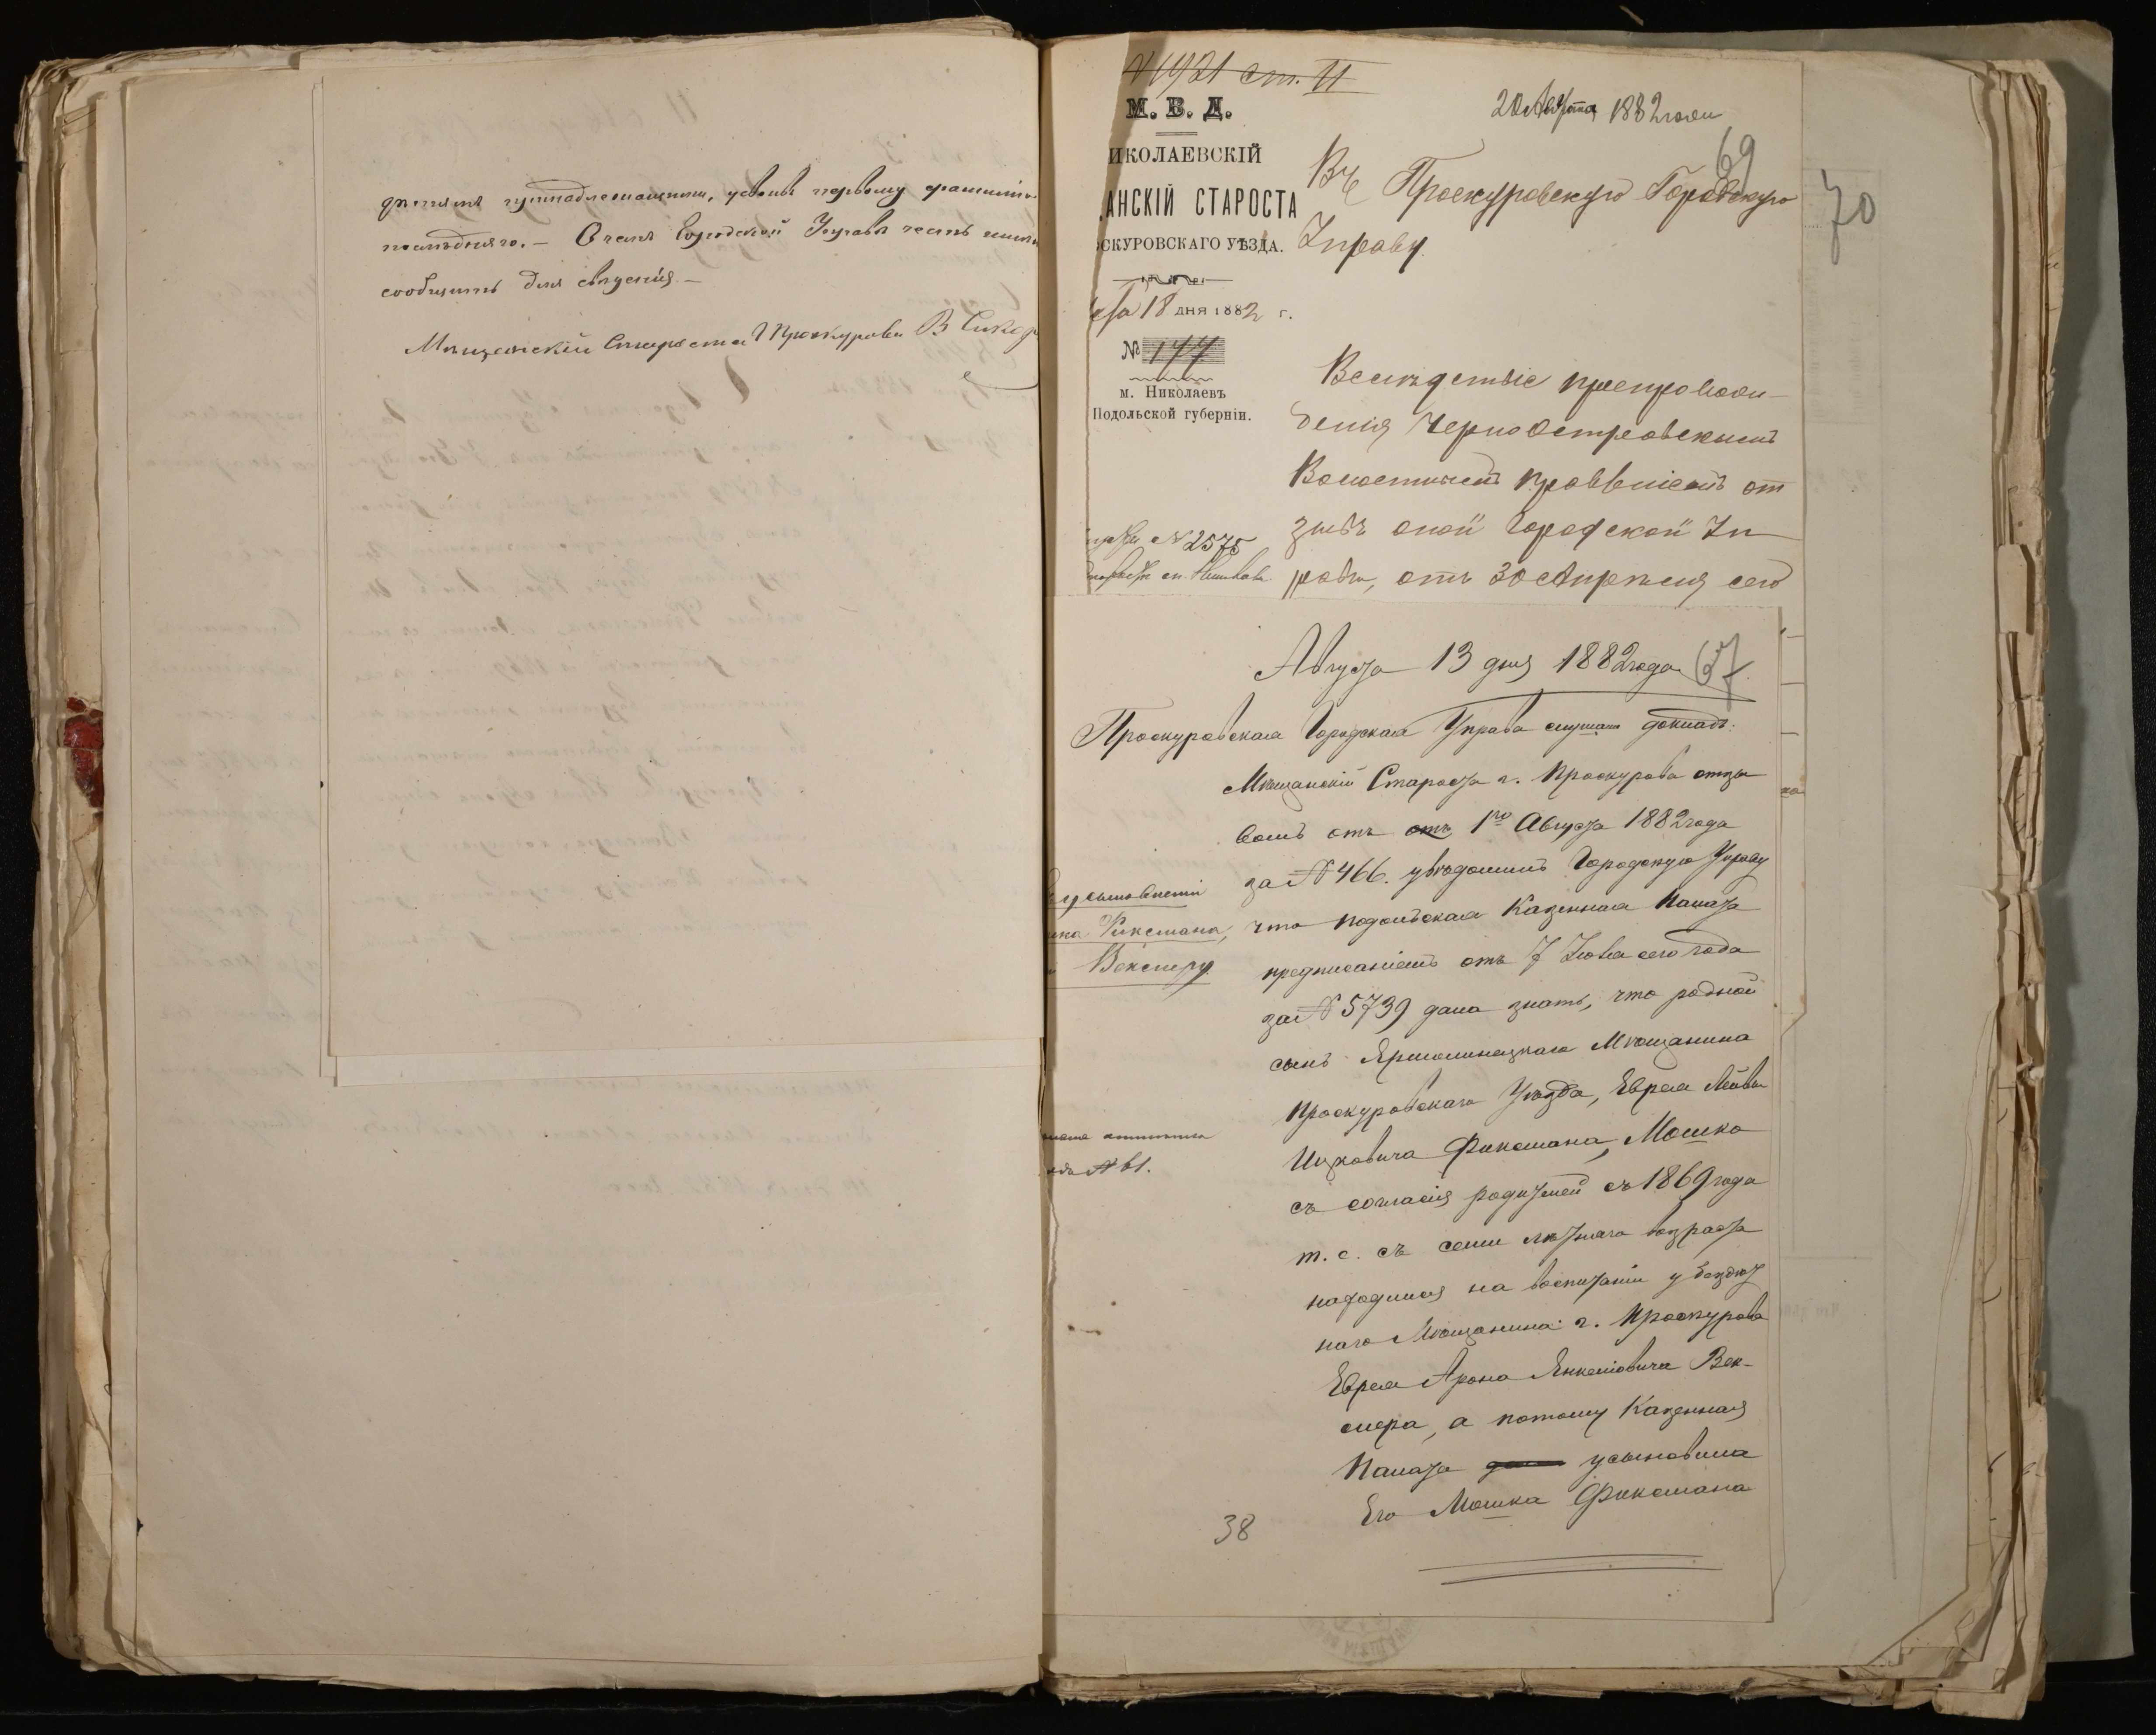 усвоивъ первому фамилію
послѣдняго. — О чемъ Городской Управѣ честь имѣю
сообщить для свѣденія —
Мѣщанскій Староста г Проскурова В
№ 1921 ст. II
М. В. Д.
ИКОЛАЕВСКІЙ
АНСКІЙ СТАРОСТА
СКУРОВСКАГО УѢЗДА.
18 ДНЯ 1882 г.
№ 177
м. Николаевъ
Подольской губерніи.
№ 2575
20 Августа 1882 года
69
70
Въ Проскуровскую Городскую
Управу
Вслѣдствіе препровож-
денія Черноостровскимъ
Волостнымъ Правленіемъ от
зывъ оной Городской Уп
равы, отъ 30 Апрѣля сего
Августа 13 дня 1882 года
67
Проскуровская Городская Управа слушала докладъ:
усыновленіи
Фиксмана,
Векслеру
№ 61.
Мѣщанскій Староста г. Проскурова отзы
вомъ отъ отъ 1го Августа 1882 года
за № 466. увѣдомилъ Городскую Управу
что Подольская Казенная Палата
предписаніемъ отъ 7 Іюля сего года
за № 5739 дала знать, что родной
сынъ Ярмолинецкаго Мѣщанина
Проскуровскаго Уѣзда, Еврея Лейбы
Ицковича Фиксмана, Мошко
съ согласія родителей съ 1869 года
т. е. съ семи лѣтняго возраста
находился на воспитаніи у бездѣт
наго Мѣщанина г. Проскурова
Еврея Арона Янкелювича Век-
слера, а потому Казенная
Палата усыновила
Его Мошка Фиксмана
38